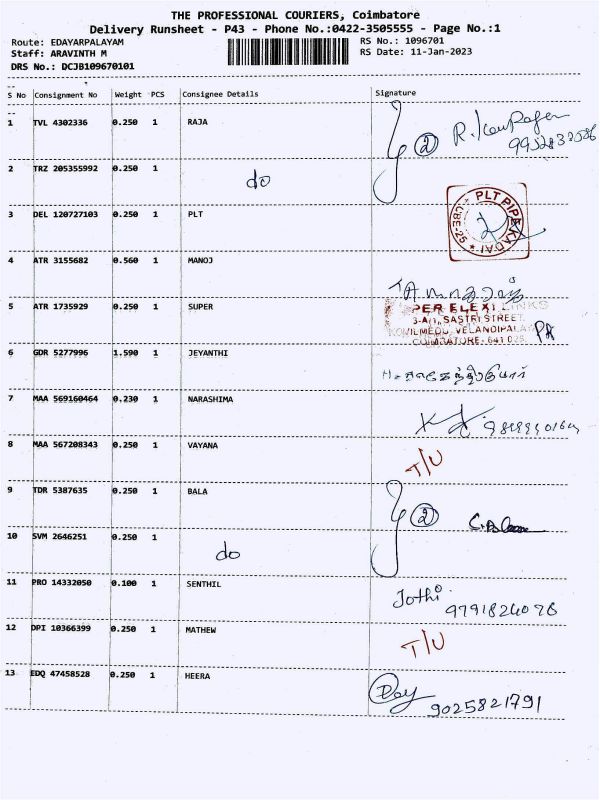 THE PROFESSIONAL COURIERS, Coimbatore
Delivery Runsheet - P43 - Phone No.:0422-3505555 - Page No.:1
Route: EDAYARPALAYAM RS No.: 1096701
Staff: ARAVINTH M RS Date: 11-Jan-2023
DRS No.: DCJB109670101
S No Consignment No Weight PCS Consignee Details Signature
1 TVL 4302336 0.250 1 RAJA 2
2 TRZ 205355992 0.250 1 do
3 DEL 120727103 0.250 1 PLT PLT PIPE KADAI CBE-25
4 ATR 3155682 0.560 1 MANOJ
5 ATR 1735929 0.250 1 SUPER PER ELEXI LINKS
3-A/1, SASTRI STREET,
VELANDIPALA
COIMBATORE - 641 025. PA
6 GDR 5277996 1.590 1 JEYANTHI
7 MAA 569160464 0.230 1 NARASHIMA
8 MAA 567208343 0.250 1 VAYANA T/U
9 TDR 5387635 0.250 1 BALA 2
10 SVM 2646251 0.250 1 do
11 PRO 14332050 0.100 1 SENTHIL Jothi
9791824076
12 DPI 10366399 0.250 1 MATHEW T/U
13 EDQ 47458528 0.250 1 HEERA
9025821791